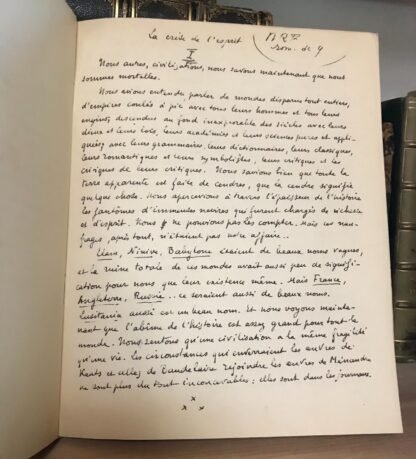 La crise de l'esprit
I
rom. de 9
Nous autres, civilisations, nous savons maintenant que nous
sommes mortelles.
Nous avions entendu parler de mondes disparus tout entiers,
d'empires coulés à pic avec tous leurs hommes et tous leurs
engins; descendus au fond inexplorable des siècles avec leurs
dieux et leurs lois, leurs académies et leurs sciences pures et appli-
quées; avec leurs grammaires, leurs dictionnaires, leurs classiques,
leurs romantiques et leurs symbolistes, leurs critiques et les
critiques de leurs critiques. Nous savions bien que toute la
terre apparente est faite de cendres, que la cendre signifie
quelque chose. Nous apercevions à travers l'épaisseur de l'histoire
les fantômes d'immenses navires qui furent chargés de richesse
et d'esprit. Nous ne pouvions pas les compter. Mais ces nau-
frages, après tout, n'étaient pas notre affaire..
Élam, Ninive, Babylone étaient de beaux noms vagues,
et la ruine totale de ces mondes avait aussi peu de signifi-
cation pour nous que leur existence même. Mais France,
Angleterre, Russie... ce seraient aussi de beaux noms.
Lusitania aussi est un beau nom. Et nous voyons mainte-
nant que l'abîme de l'histoire est assez grand pour tout le
monde. Nous sentons qu'une civilisation a la même fragilité
qu'une vie. Les circonstances qui enverraient les œuvres de
Keats et celles de Baudelaire rejoindre les œuvres de Ménandre
ne sont plus du tout inconcevables : elles sont dans les journaux.
x x x